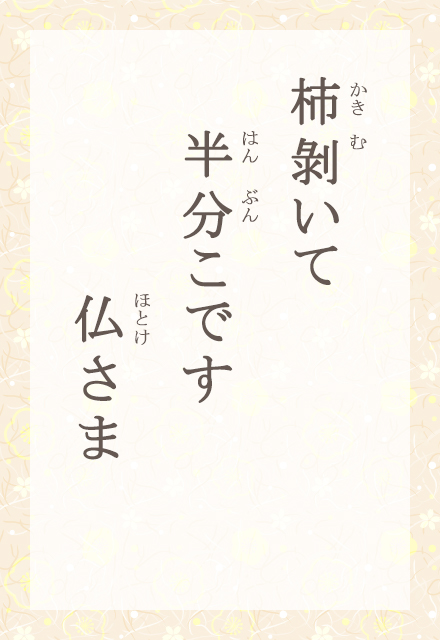 柿剝いて
半分こです
仏さま
かき む
はん ぶん
ほとけ